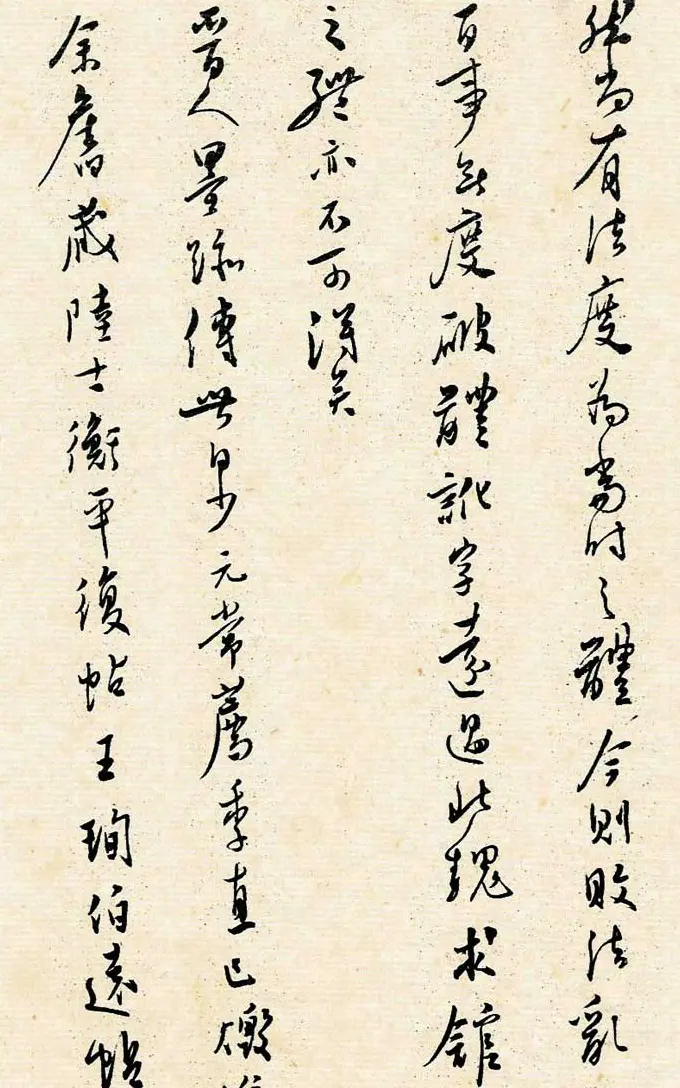 然尚有法度為當时之體今則敗法亂
百事無度破體訛字遠過此求舘
之體亦不可得矣
晉人墨跡傳世少元常薦季直已燬
余舊藏陸士衡平復帖王珣伯遠帖